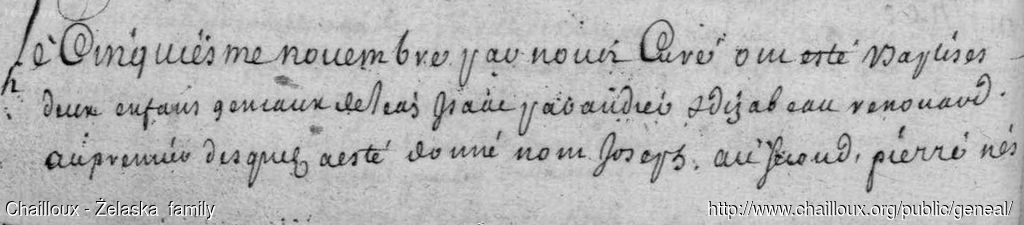 Le Cinquiesme novembre par nous Curé ont esté Baptises
deux enfans gemeaux de Isaac et d'izabeau renouard.
au premier desquels a esté donné nom Joseph. au second, pierre nés
Chailloux - Želaska family
http://www.chailloux.org/public/geneal/